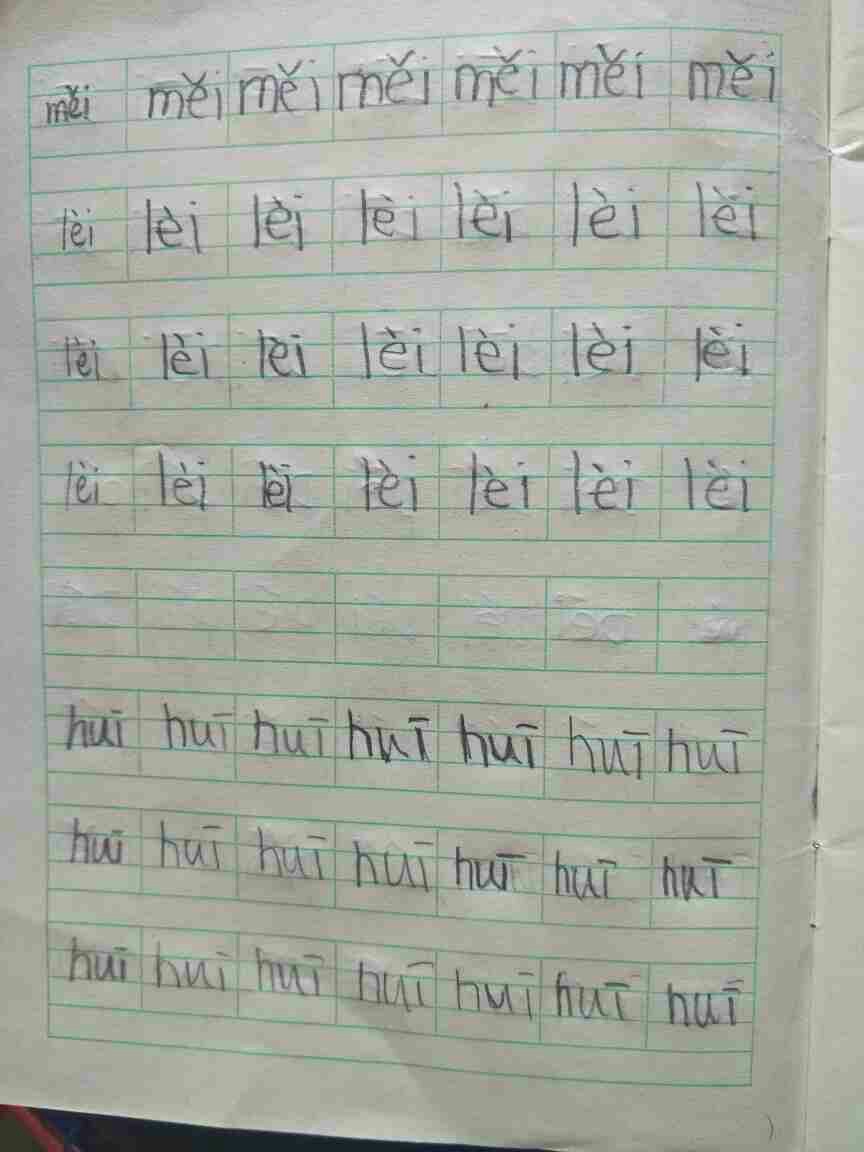 měi měi měi měi měi měi měi
lèi lèi lèi lèi lèi lèi lèi
lèi lèi lèi lèi lèi lèi lèi
lèi lèi lèi lèi lèi lèi lèi
huī huī huī huī huī huī huī
huī huī huī huī huī huī huī
huī huī huī huī huī huī huī